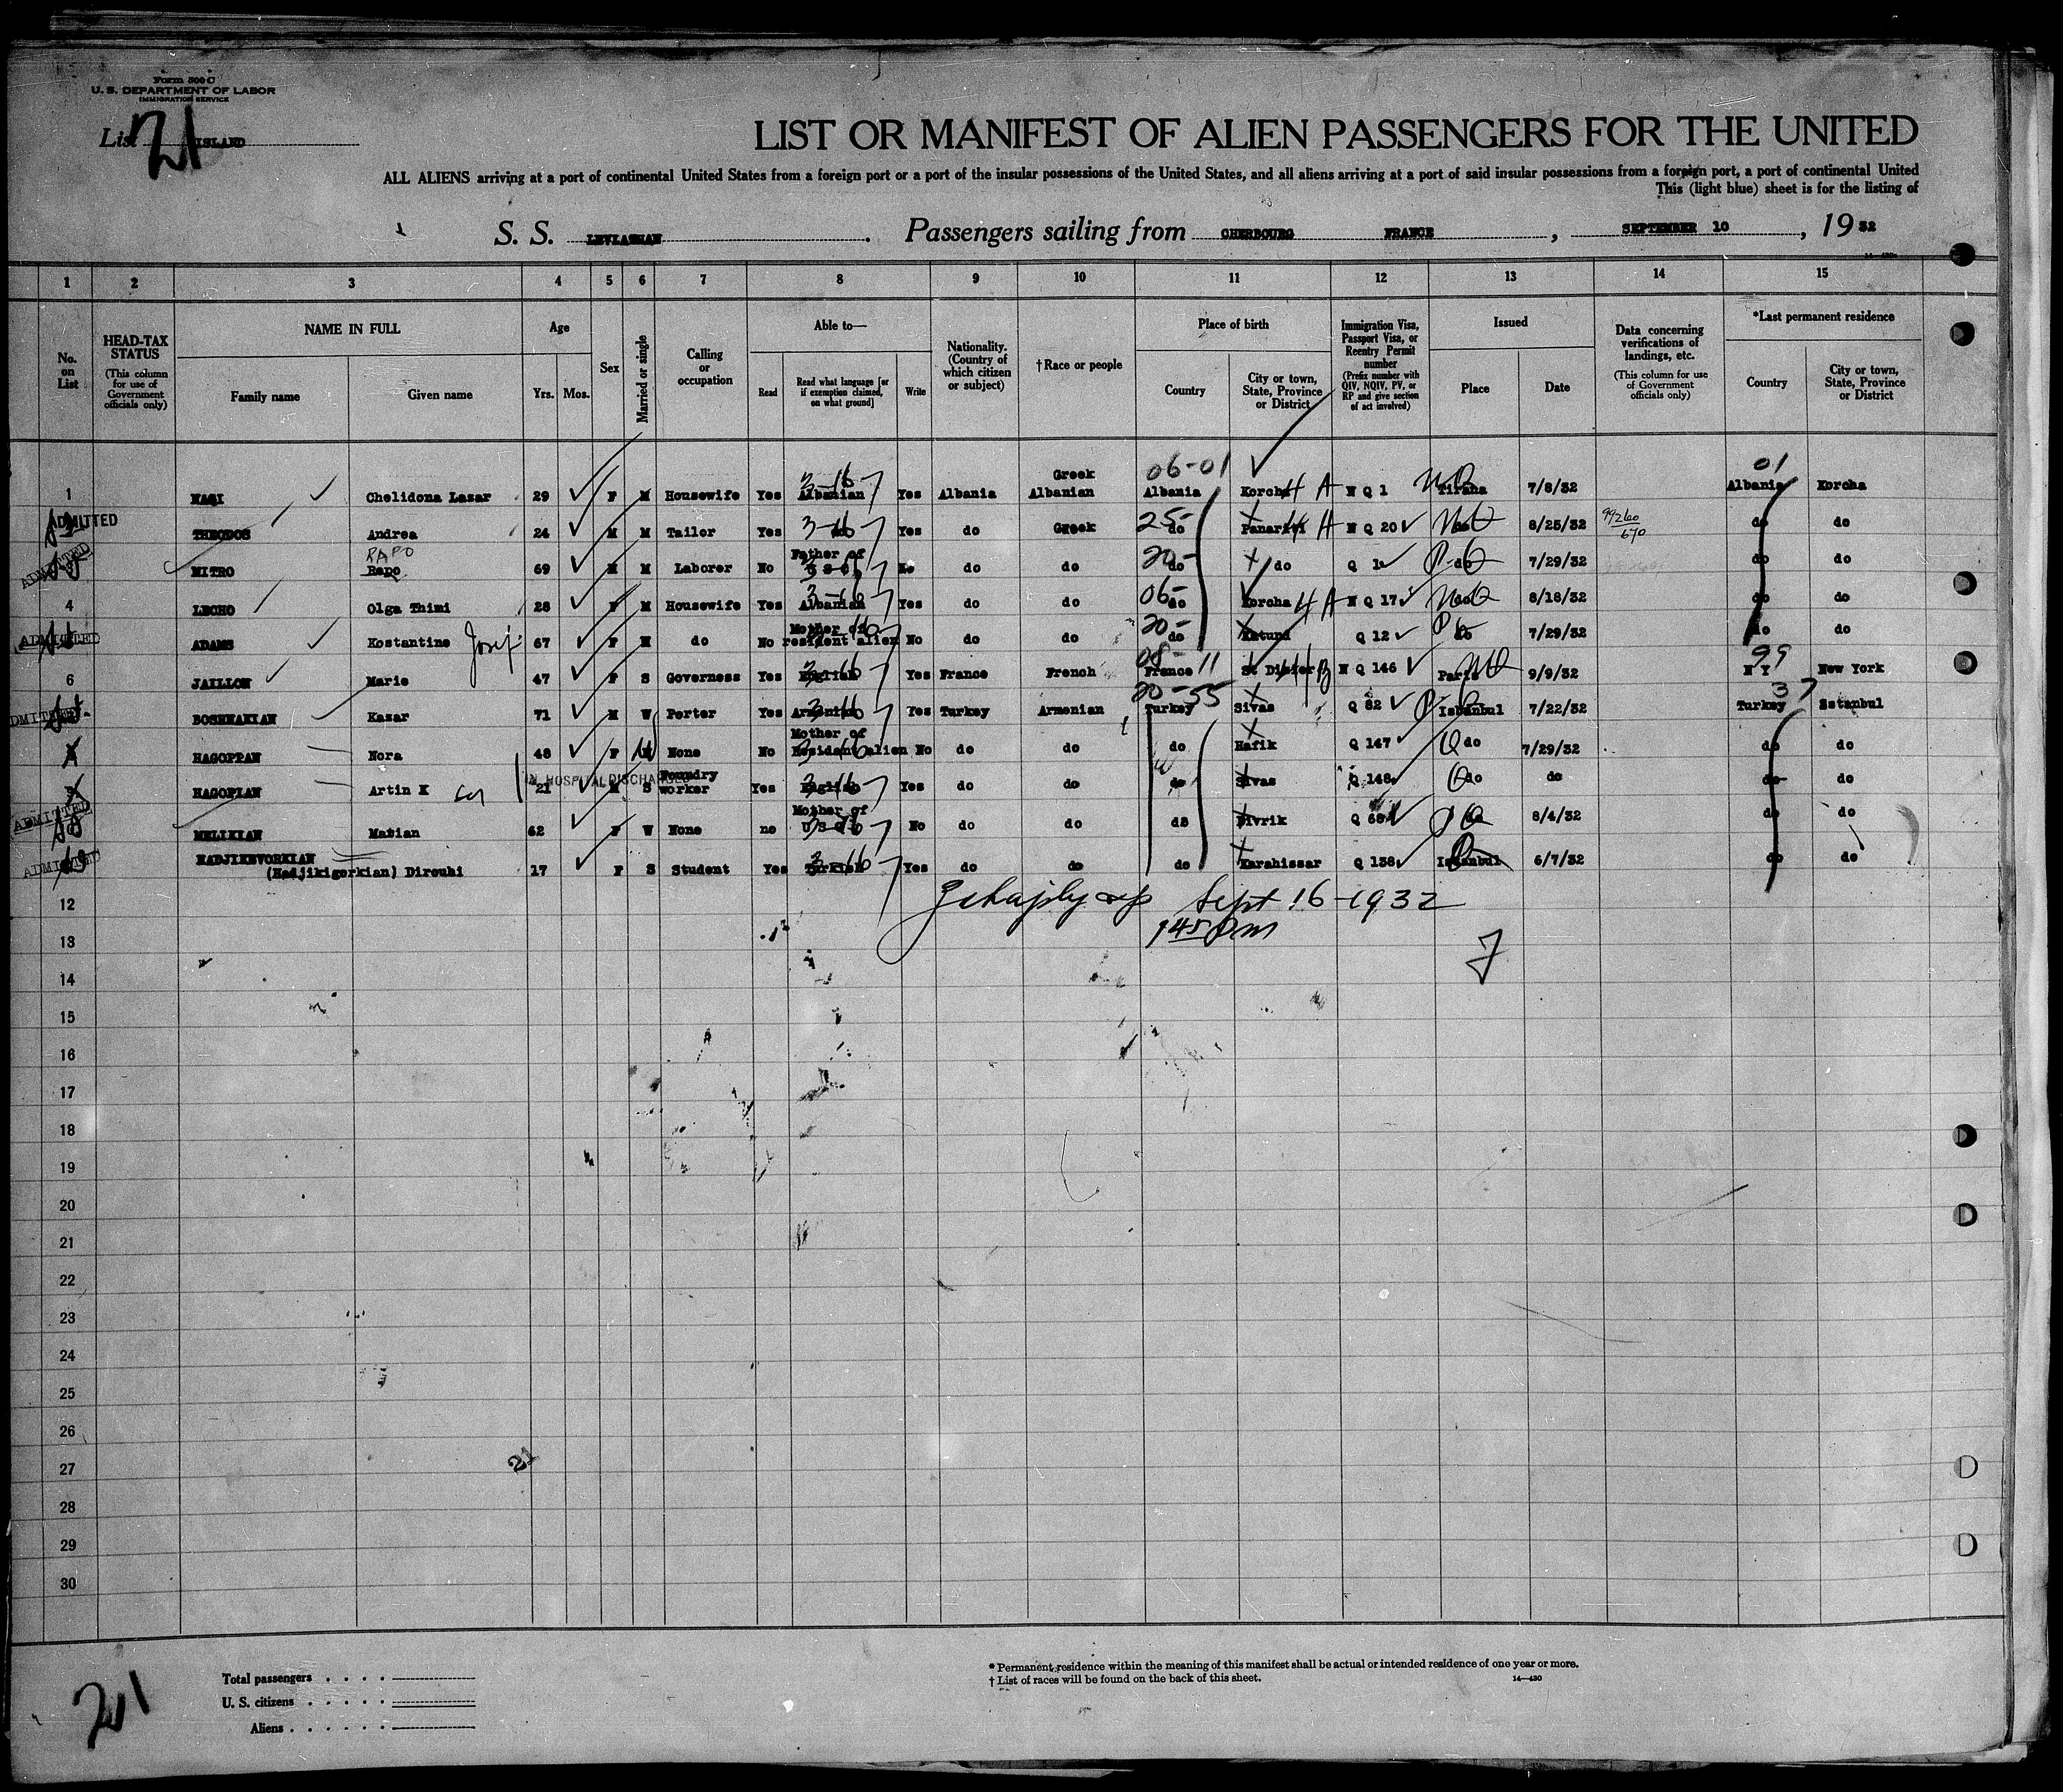 Form 500 C
U. S. DEPARTMENT OF LABOR
IMMIGRATION SERVICE
List 21 ISLAND
LIST OR MANIFEST OF ALIEN PASSENGERS FOR THE UNITED
ALL ALIENS arriving at a port of continental United States from a foreign port or a port of the insular possessions of the United States, and all aliens arriving at a port of said insular possessions from a foreign port, a port of continental United
This (light blue) sheet is for the listing of
S. S. LEVIATHAN. Passengers sailing from CHERBOURG FRANCE, SEPTEMBER 10, 1932
1 2 3 4 5 6 7 8 9 10 11 12 13 14 15
No. on List
HEAD-TAX STATUS (This column for use of Government officials only)
NAME IN FULL Family name Given name
Age Yrs. Mos.
Sex
Married or single
Calling or occupation
Able to— Read Read what language [or if exemption claimed, on what ground] Write
Nationality. (Country of which citizen or subject)
†Race or people
Place of birth Country City or town, State, Province or District
Immigration Visa, Passport Visa, or Reentry Permit number (Prefix number with QIV, NQIV, PV, or RP and give section of act involved)
Issued Place Date
Data concerning verifications of landings, etc. (This column for use of Government officials only)
*Last permanent residence Country City or town, State, Province or District
06-01 01
1 NAQI Chelidona Lazar 29 F M Housewife Yes Albanian 3-16 Yes Albania Greek Albanian Albania Korcha 4 A N Q 1 Tirana 7/8/32 Albania Korcha
ADMITTED THEODOS Andrea 24 M M Tailor Yes do 3-16 Yes do Greek 25- do Panariti H N Q 20 do 8/25/32 99260/670 do do
ADMITTED MITRO Rapo RAPO 69 M M Laborer No Father of U S C No do do 20- do do Q 1 do 7/29/32 do do
4 LECHO Olga Thimi 28 F M Housewife Yes Albanian 3-16 Yes do do 06- do Korcha 4 A N Q 17 do 8/18/32 do do
ADMITTED ADAMS Kostantine Josif 67 F M do No Mother of resident alien No do do 20- do Katund Q 12 do 7/29/32 do do
6 JAILLON Marie 47 F S Governess Yes English 3-16 Yes France French France 11 St Dizier N Q 146 Paris 9/9/32 99 N Y New York
ADMITTED BOSHNAKIAN Kazar 71 M W Porter Yes Armenian 3-16 Yes Turkey Armenian 20-55 Turkey Sivas Q 82 Istanbul 7/22/32 37 Turkey Istanbul
HAGOPPAN Nora 48 F W None No Mother of Resident alien No do do do Hafik Q 147 do 7/29/32 do do
HAGOPIAN Artin K 21 IN HOSPITAL DISCHARGED M S Foundry worker Yes English 3-16 Yes do do do Sivas Q 148 do do do do
ADMITTED MELIKIAN Marian 62 F W None no Mother of U S C No do do do Divrik Q 65 8/4/32 do do
ADMITTED HADJIKEVORKIAN (Hadjikigorkian) Dirouhi 17 F S Student Yes Turkish 3-16 Yes do do do Karahissar Q 138 Istanbul 6/7/32 do do
12 Sept 16-1932
13 145 Pm
14
15
16
17
18
19
20
21
22
23
24
25
26
21
27
28
29
30
21
Total passengers
U. S. citizens
Aliens
* Permanent residence within the meaning of this manifest shall be actual or intended residence of one year or more.
† List of races will be found on the back of this sheet.
14—430